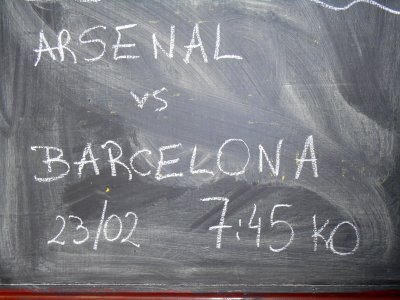 ARSENAL
vs
BARCELONA
23/02 7:45 KO